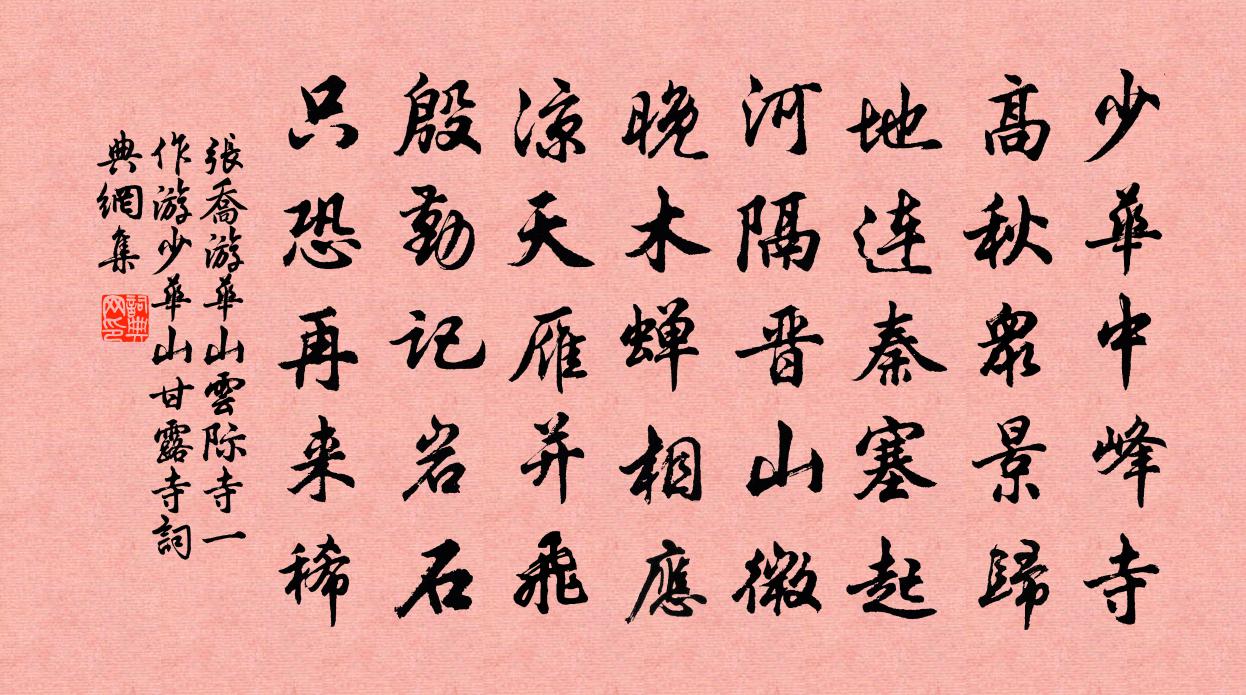 少華中峰寺
高秋眾景歸
地連秦塞起
河隔晋山微
晚木蝉相應
凉天雁并飛
殷勤記岩石
只恐再来稀
張喬游華山雲际寺一
作游少華山甘露寺詞
典網集
詞典网印